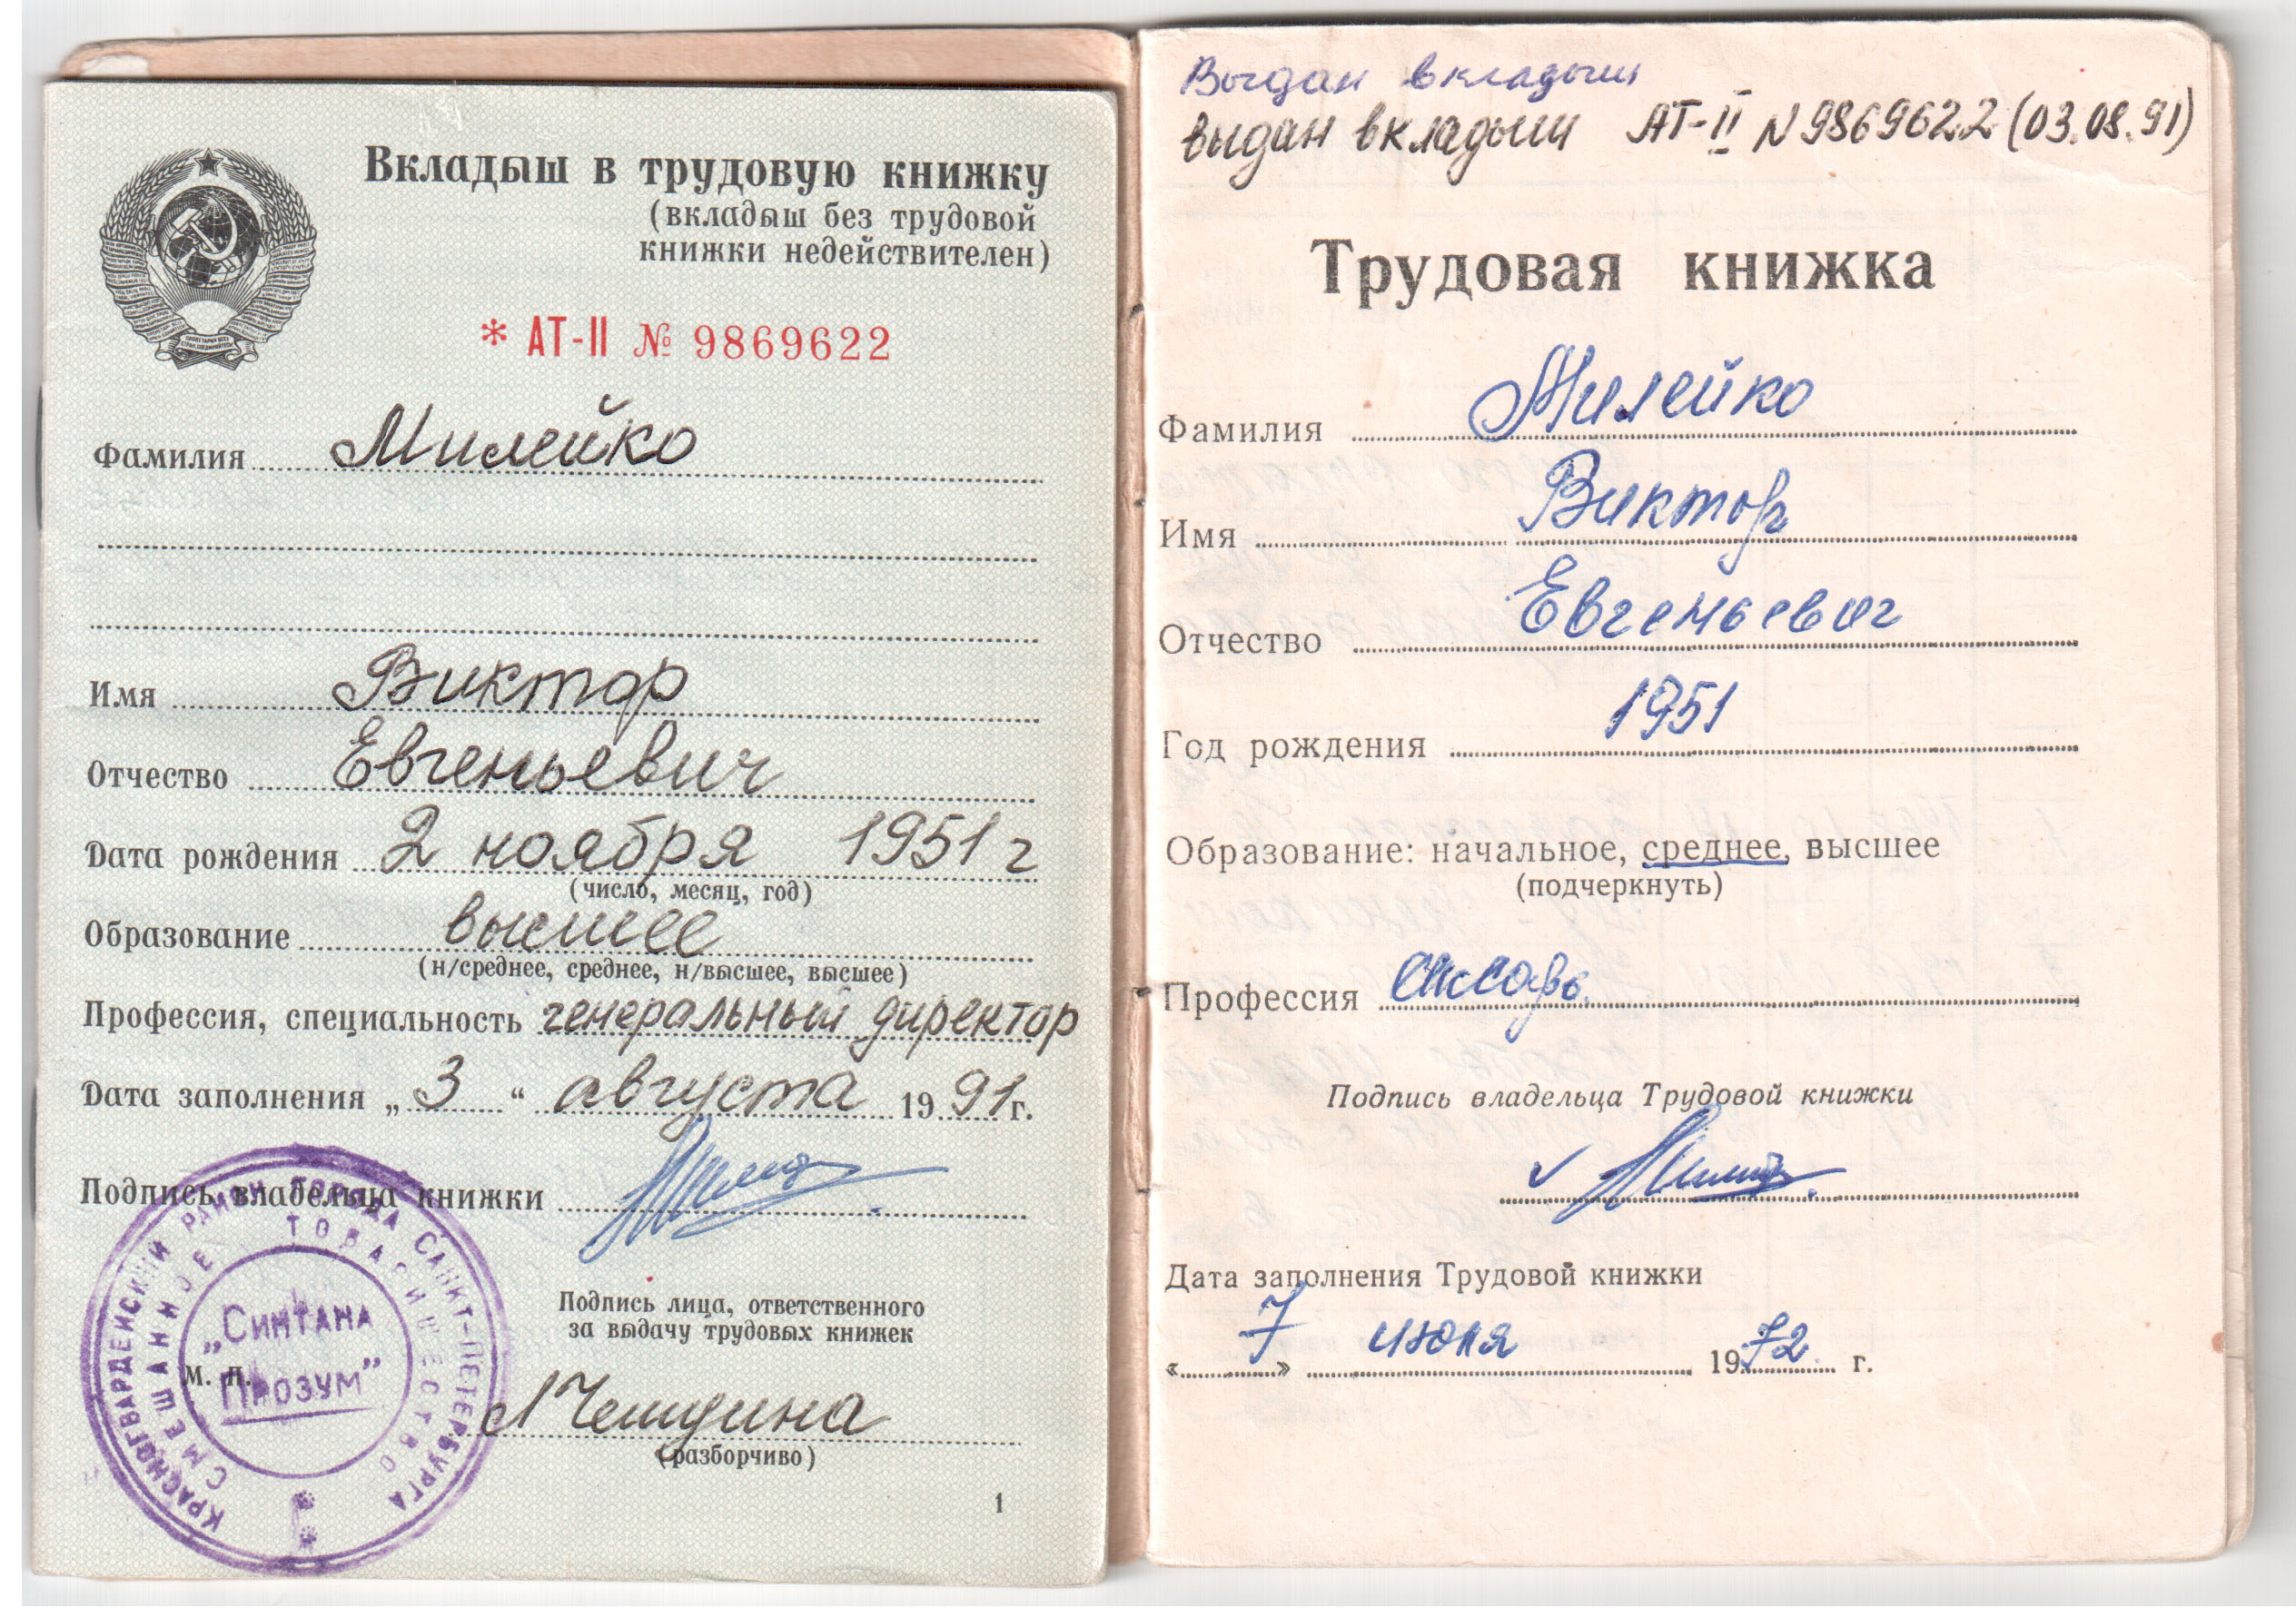 Вкладыш в трудовую книжку
(вкладыш без трудовой
книжки недействителен)
* АТ-II № 9869622
Фамилия Милейко
Имя Виктор
Отчество Евгеньевич
Дата рождения 2 ноября 1951 г
(число, месяц, год)
Образование высшее
(н/среднее, среднее, н/высшее, высшее)
Профессия, специальность генеральный директор
Дата заполнения „3“ августа 1991 г.
Подпись владельца книжки
Подпись лица, ответственного
за выдачу трудовых книжек
М. П.
(разборчиво)
КРАСНОГВАРДЕЙСКИЙ РАЙОН ГОРОДА САНКТ-ПЕТЕРБУРГА
СМЕШАННОЕ ТОВАРИЩЕСТВО
„СИНТАНА
ПРОЗУМ”
1
Выдан вкладыш
выдан вкладыш АТ-II N 9869622 (03.08.91)
Трудовая книжка
Фамилия Милейко
Имя Виктор
Отчество Евгеньевич
Год рождения 1951
Образование: начальное, среднее, высшее
(подчеркнуть)
Профессия слесарь
Подпись владельца Трудовой книжки
Дата заполнения Трудовой книжки
«7» июня 1972 г.